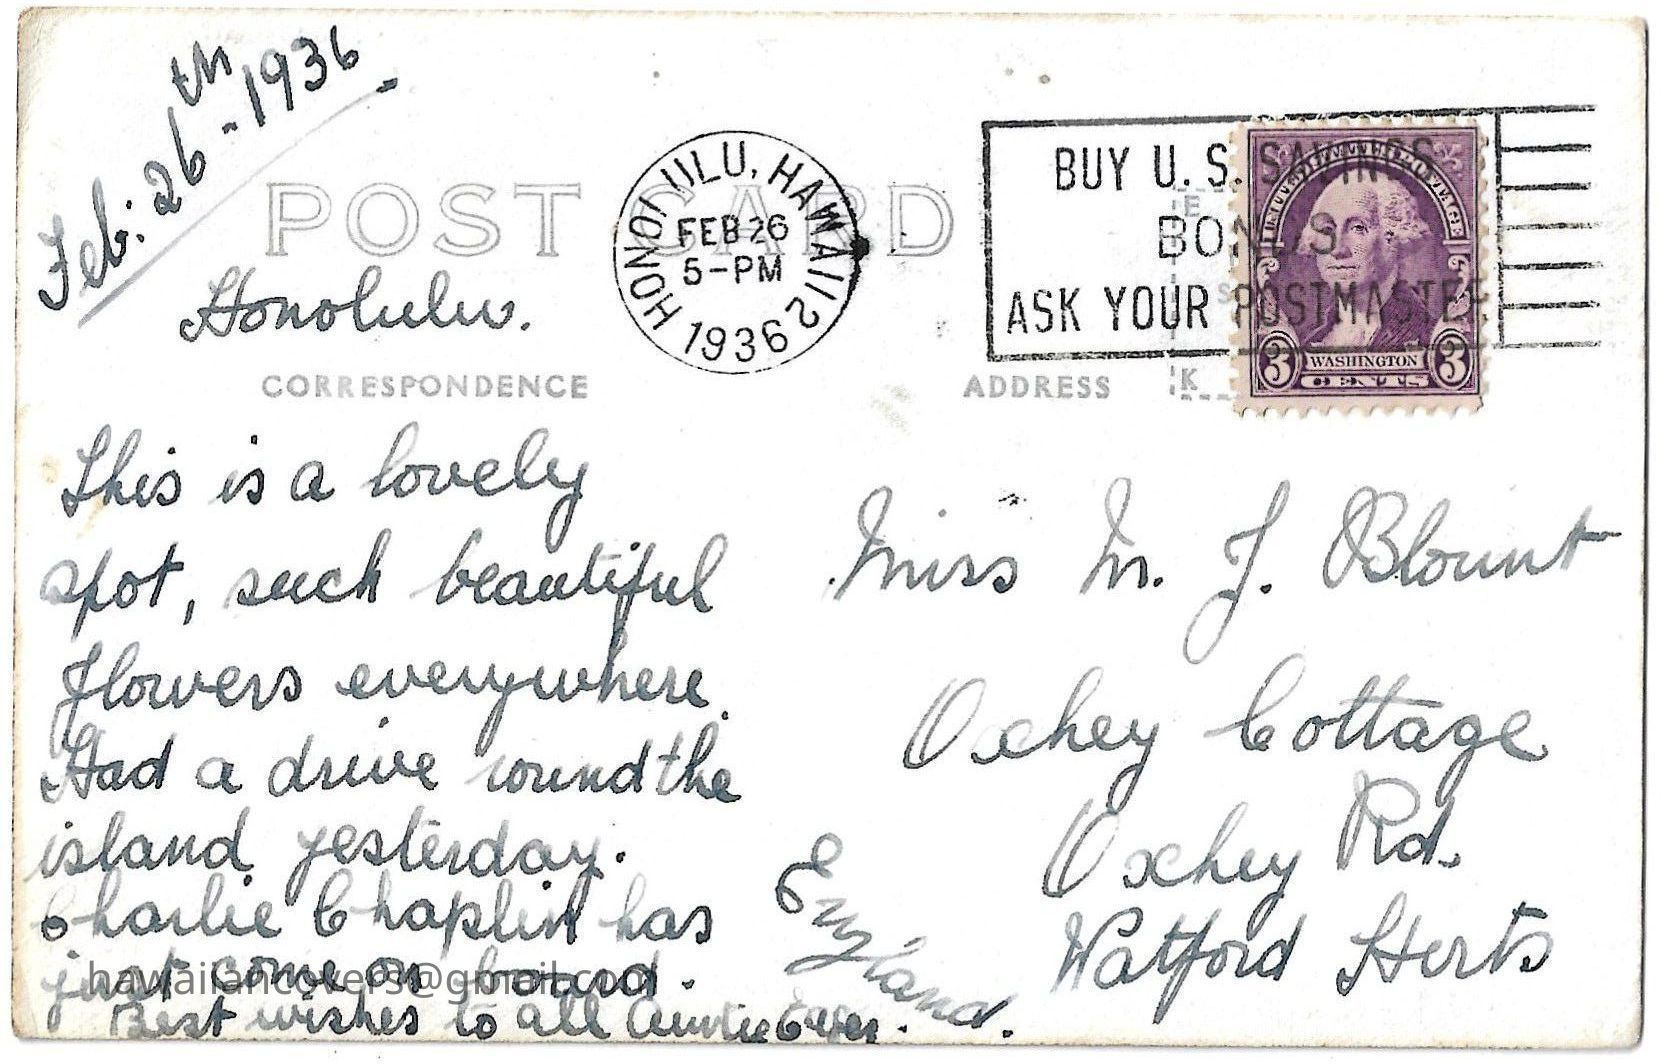 Feb: 26th - 1936
POST CARD
Honolulu.
CORRESPONDENCE
HONOLULU, HAWAII 2
FEB 26
5-PM
1936
BUY U. S. SAVINGS
BONDS
ASK YOUR POSTMASTER
UNITED STATES POSTAGE
3 WASHINGTON 3
CENTS
ADDRESS
K
This is a lovely
spot, such beautiful
flowers everywhere.
Had a drive round the
island yesterday.
Charlie Chaplin has
just come on board.
Best wishes to all Auntie
hawaiiancovers@gmail.com
Miss M. J. Blount
Oxhey Cottage
Oxhey Rd.
Watford Herts
England.